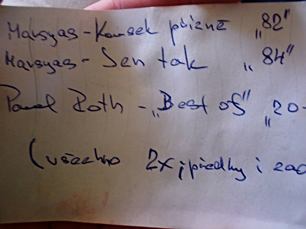 Marsyas - Kousek přízně "82"
Marsyas - Jen tak "84"
Pavel Roth - "Best of" "20-
(všechno 2x; předky i zad